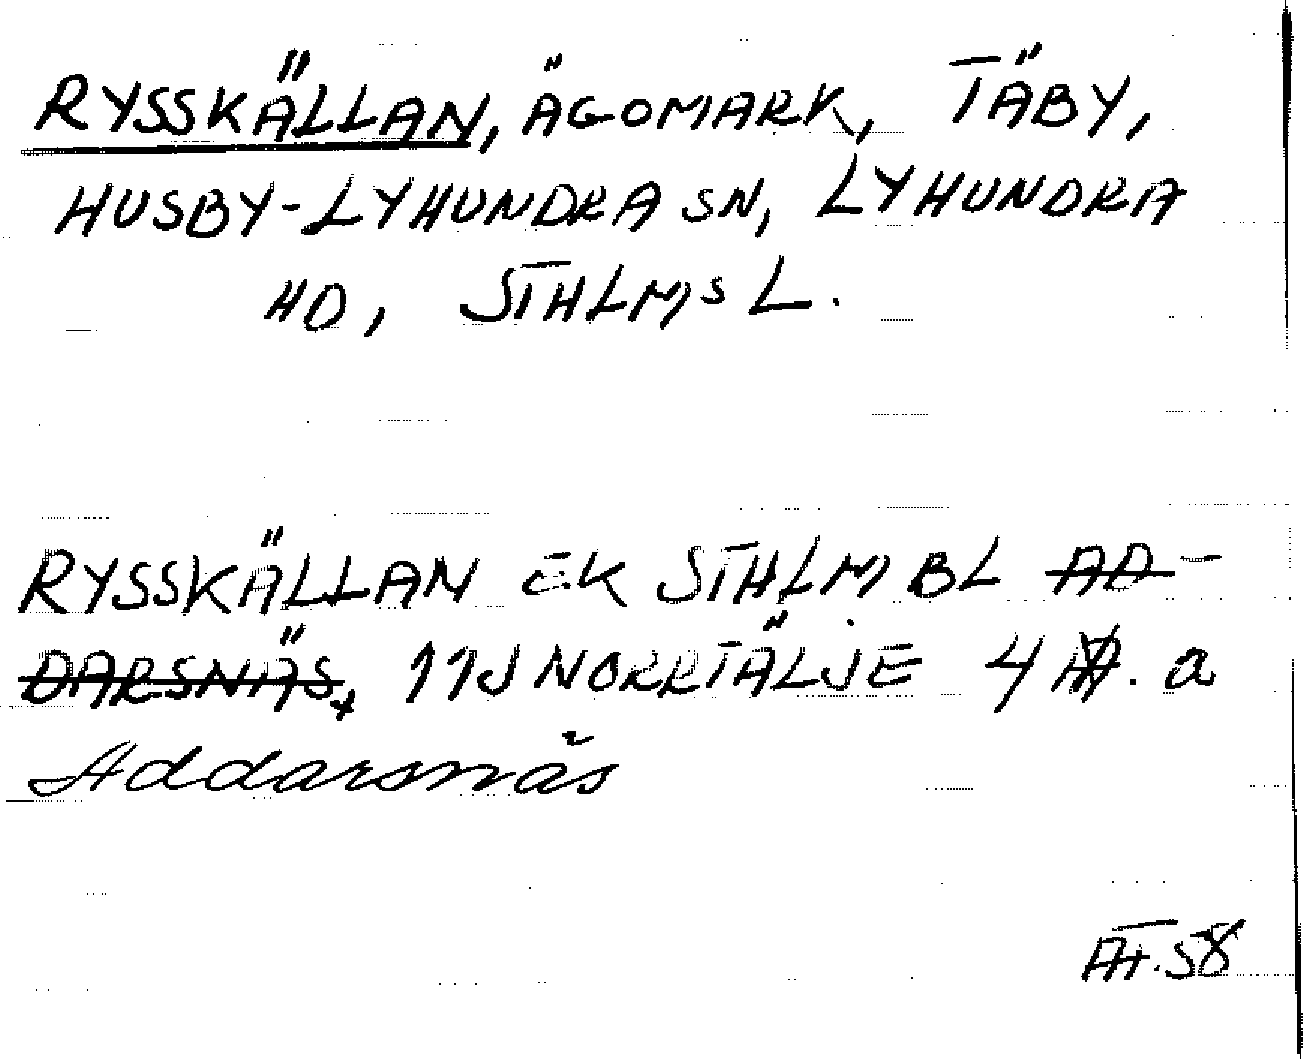 RYSSKÄLLAN, ÄGOMARK, TÄBY,
HUSBY-LYHUNDRA SN, LYHUNDRA
HD, STHLMS L.
RYSSKÄLLAN EK STHLM BL AD-
DARSNÄS, 11J NORRTÄLJE 4 . a
Addarsnäs
58